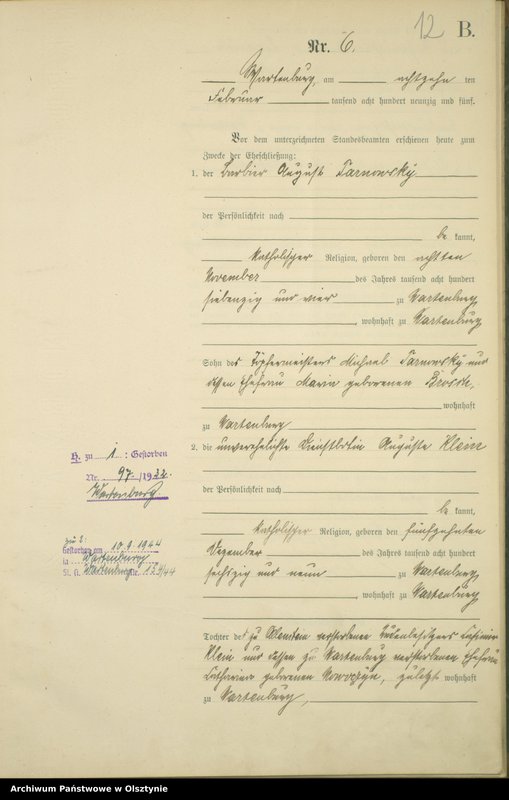 12 B.
Nr. 6.
Wartenburg, am achtzehn ten
Februar tausend acht hundert neunzig und fünf.
Vor dem unterzeichneten Standesbeamten erschienen heute zum
Zwecke der Eheschließung:
1. der Barbier August Tarnowsky
der Persönlichkeit nach
be kannt,
katholischer Religion, geboren den achtten
November des Jahres tausend acht hundert
siebenzig und vier zu Wartenburg
, wohnhaft zu Wartenburg
Sohn des Töpfermeisters Michael Tarnowsky und
dessen Ehefrau Maria geborenen
wohnhaft
zu Wartenburg
2. die unverehelichte Dienstbotin Auguste Klein
der Persönlichkeit nach
be kannt,
katholischer Religion, geboren den fünfzehnten
Dezember des Jahres tausend acht hundert
sechszig und neun zu Wartenburg
, wohnhaft zu Wartenburg
Tochter des zu Allenstein verstorbenen Casimir
Klein und dessen zu Wartenburg verstorbenen Ehefrau
Catharina geborenen zuletzt wohnhaft
zu Wartenburg,
H. zu 1 : Gestorben
Nr. 97 /1932.
Wartenburg
zu 2:
Gestorben am 10.9.1944
in Wartenburg
St. A. Wartenburg Nr. 134/44
Archiwum Państwowe w Olsztynie